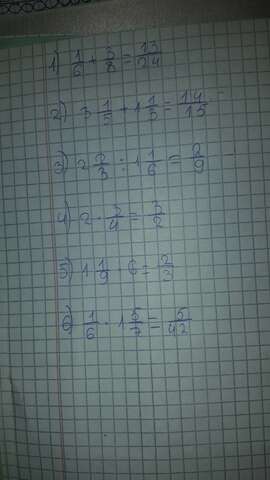 1) 1/6 + 3/8 = 13/24
2) 3 1/5 + 1 1/3 = 14/15
3) 2 2/3 : 1 1/6 = 2/9
4) 2 · 3/4 = 3/2
5) 1 1/9 · 6 = 2/3
6) 1/6 · 1 5/7 = 5/42